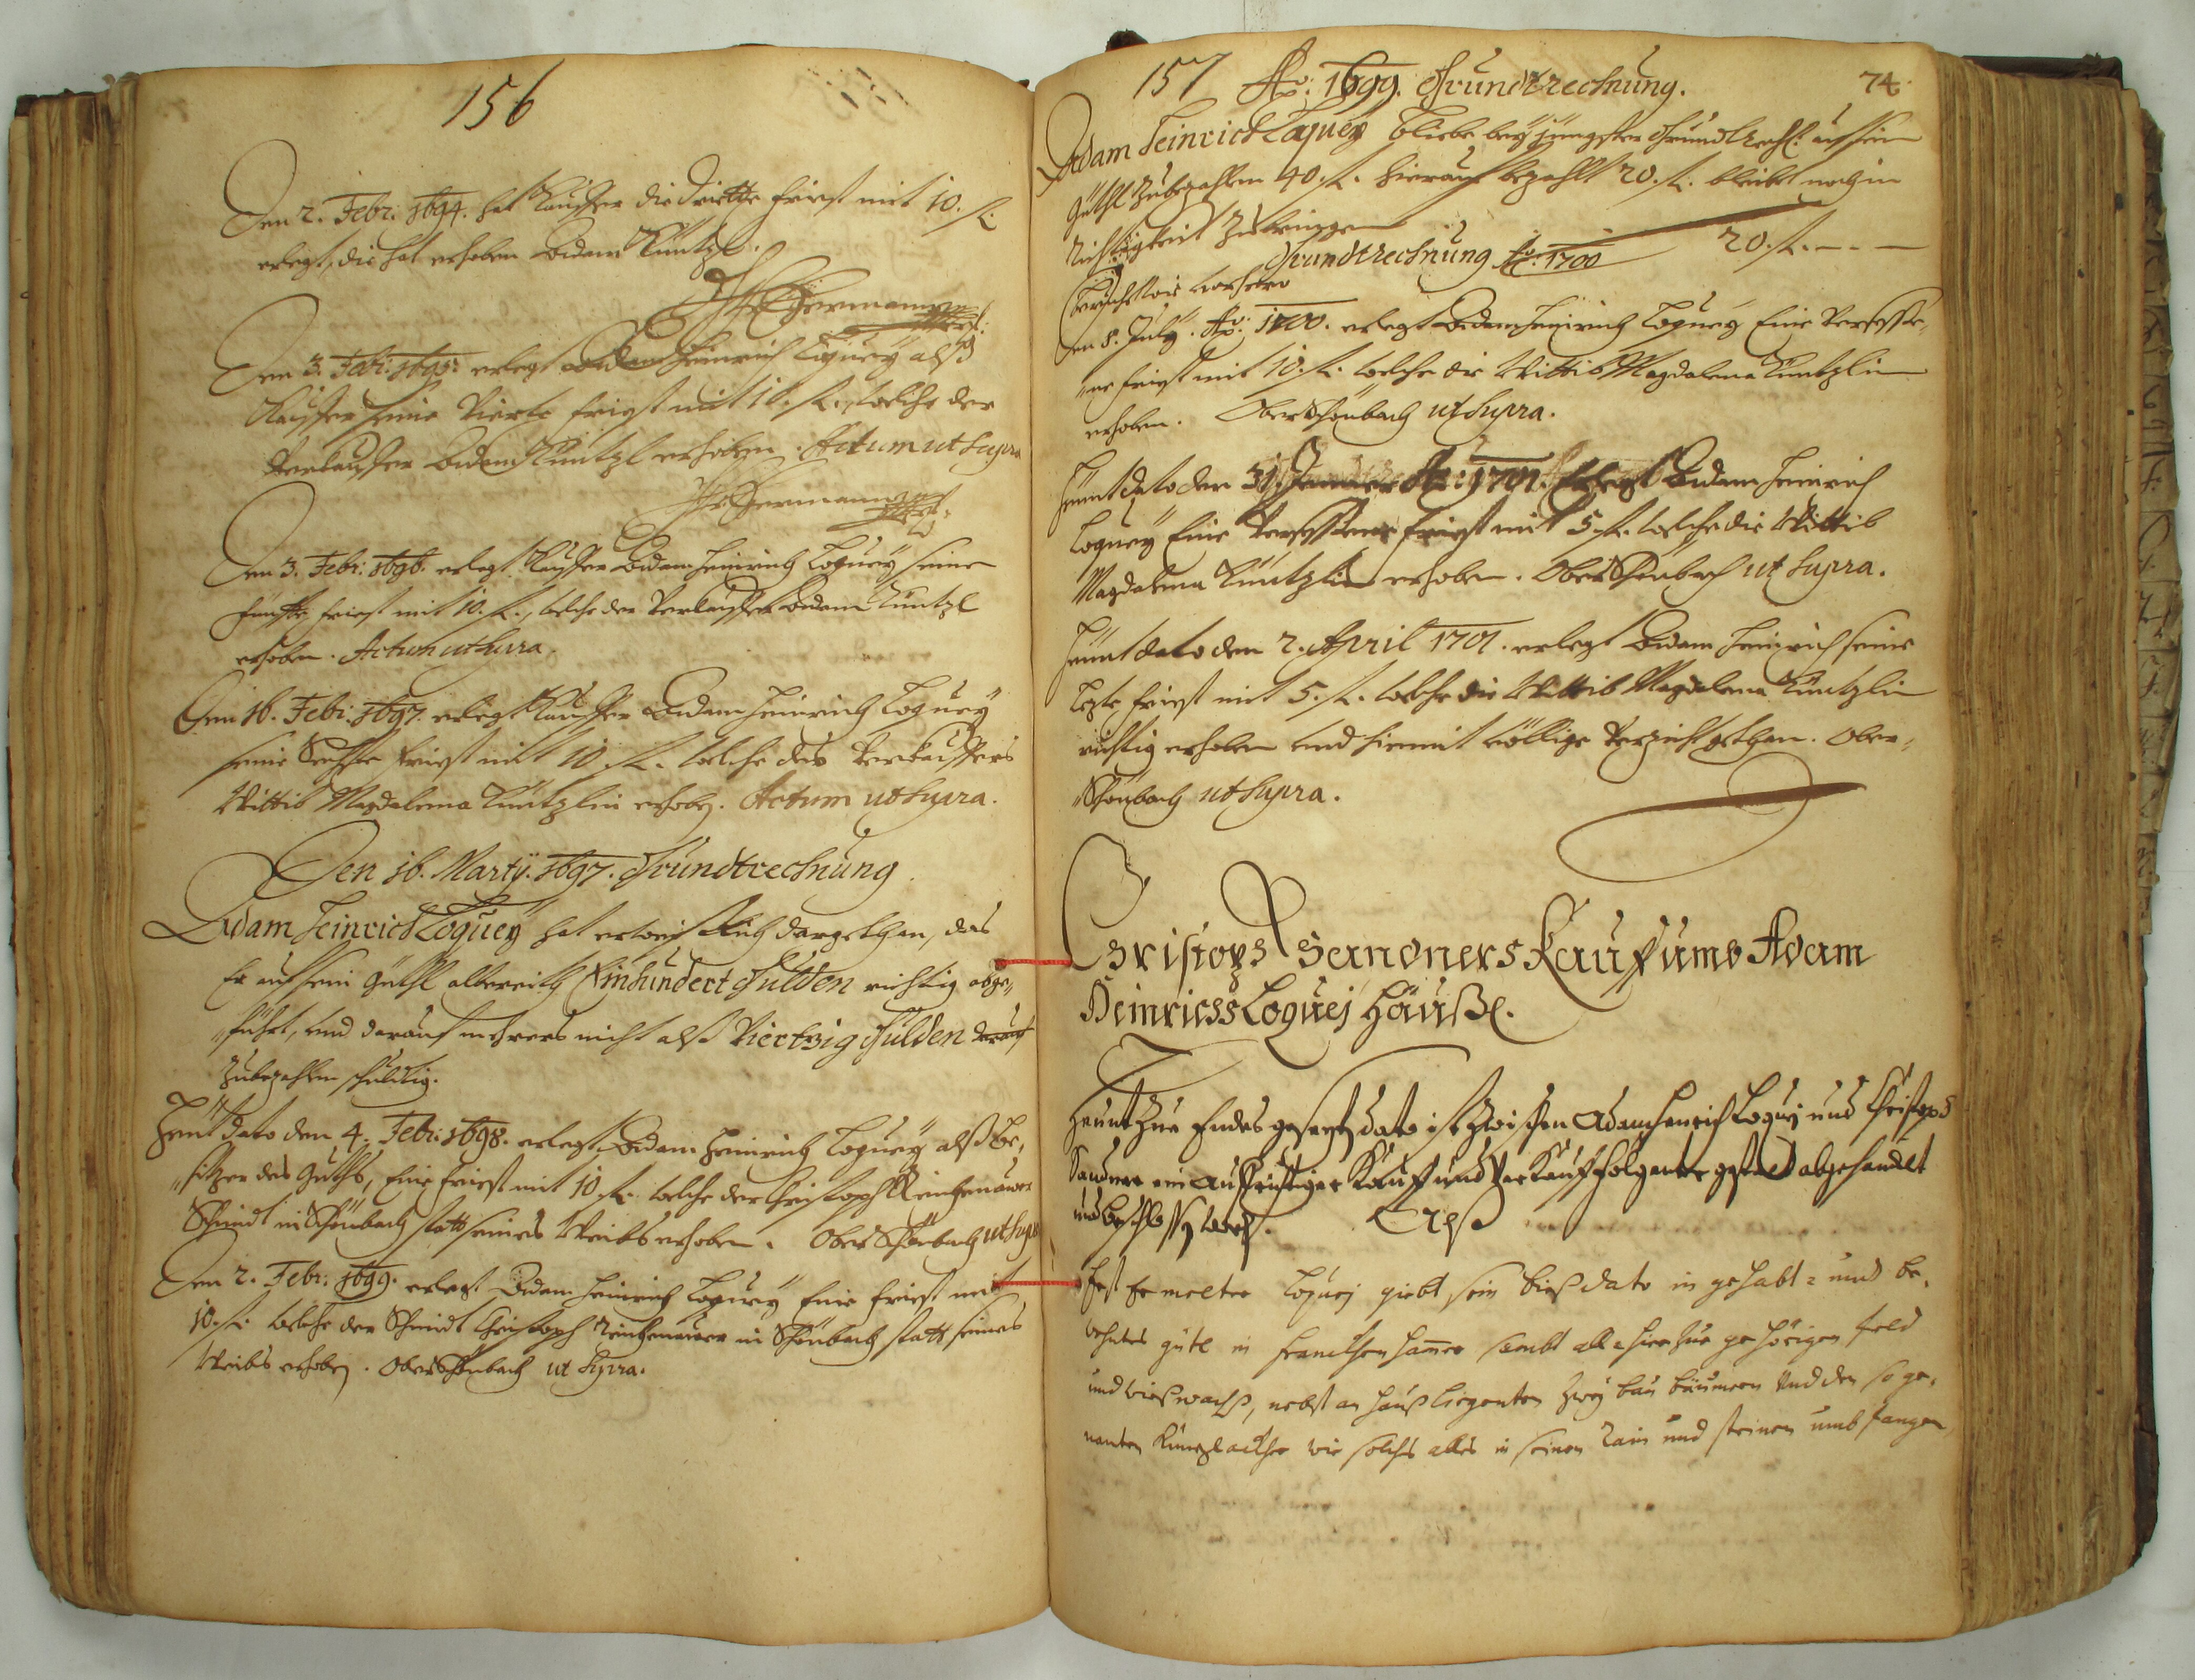 156
Den 2. Febr: 1694. hat Kauffer die dritte Frist mit 10. fl.
erlegt, die hat erhoben Adam Küntzl.
Hermann
Den 3. Febr: 1695. erlegt Adam Heinrich Loguey alß
Kauffer seine Vierte Frist mit 10. fl., welche der
Verkauffer Adam Küntzl erhoben. Actum ut supra
Hermann
Den 3. Febr: 1696. erlegt Kauffer Adam Heinrich Loguey seine
fünffte Frist mit 10. fl., welche der Verkauffer Adam Küntzl
erhoben. Actum ut supra.
Den 16. Febr: 1697. erlegt Kauffer Adam Heinrich Loguey
seine Sechste Frist mit 10. fl. welche des Verkauffers
Wittib Magdalena Küntzlin erhoben. Actum ut supra.
Den 16. Martÿ. 1697. Grundtrechnung.
Adam Heinrich Loguey hat erweißlich dargethan, das
Er auf sein Güthl allbereith Einhundert Gulden richtig abge„
„führt, und darauf mehrers nicht alß Viertzig Gulden darauf
zubezahlen schuldig.
Heut dato den 4. Febr: 1698. erlegt Adam Heinrich Loguey alß Be„
„sitzer des Guths, Eine Frist mit 10. fl. welche der Christoph Reichenauer
Schmidt in Schönbach statt seines Weibs erhoben. Ober Schönbach ut supra
Den 2. Febr: 1699. erlegt Adam Heinrich Loguey Eine Frist mit
10. fl. welche der Schmidt Christoph Reichenauer in Schönbach statt seines
Weibs erhoben. Ober Schönbach ut supra.
157 Ao: 1699. Grundtrechnung. 74.
Adam Heinrich Loguey bliebe bey jüngster Grundtrech: auf sein
Güthl zubezahlen 40. fl. hierauf bezahlt 20. fl. bleibt noch in
Richtigkeit zubringen 20. fl. – – –
Grundtrechnung Ao: 1700
Beruhet wie vorhero
Den 8. July. Ao: 1700. erlegt Adam Heinrich Loguey Eine Versesse„
„ne Frist mit 10. fl. welche die Wittib Magdalena Küntzlin
erhoben. Ober Schönbach ut supra.
Heunt dato den 31. Ao: 1701. Erlegt Adam Heinrich
Loguey Eine Versessene Frist mit 5. fl. welche die Wittib
Magdalena Küntzlin erhoben. Ober Schönbach ut supra.
Heunt dato den 2. April 1701. erlegt Adam Heinrich seine
lezte Frist mit 5. fl. welche die Wittib Magdalena Küntzlin
richtig erhoben und hiemit völlige Verzicht gethan. Ober„
„Schönbach ut supra.
Christoph Sandners Kauff umb Adam
Heinrichs Loguej Häußl.
Heunt zue Endes gesetzt dato ist zwischen Adam Henrich Loguej und Christoph
Sandner ein auffrichtiger Kauf und Verkauf folgenter gstalt abgehandlet
und beschlossen worden. Alß
Erst Ermelter Loguej giebt sein bieß dato in gehabt= und be„
wohntes gütl in Franckhenhamer sambt all= hierzue gehörigen feld
und wießwachß, nebst am hauß liegenten zwey bau bäumern Und den so ge„
nanten Küntzlackher wie solches alles in seinen Rain und steinen umbfangen